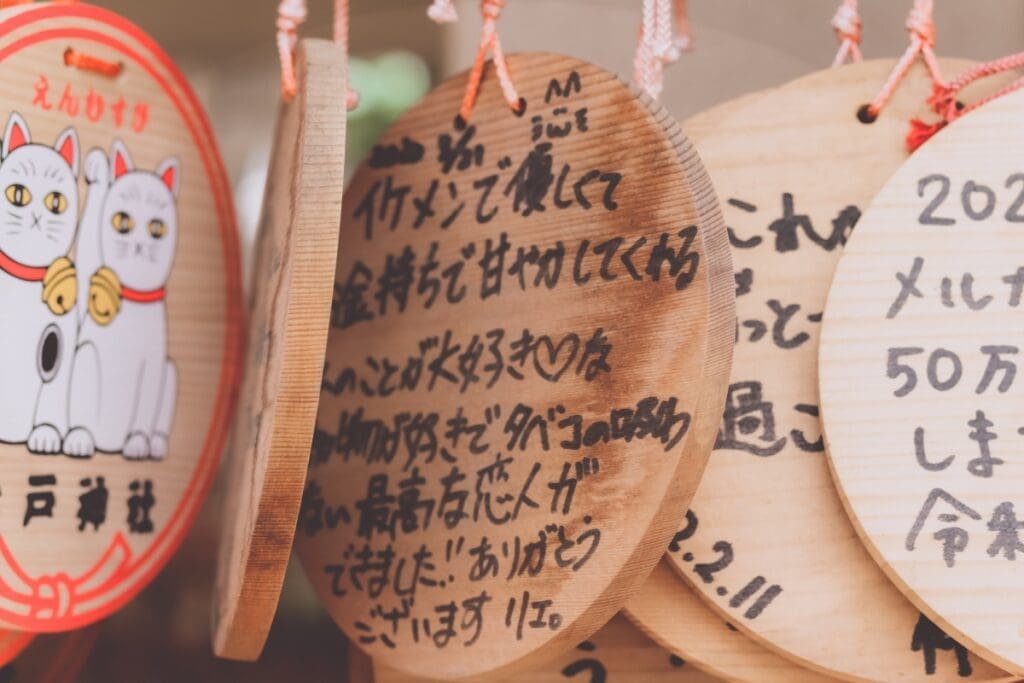 えんむすび
戸神社
イケメンで優しくて
金持ちで甘やかしてくれる
のことが大好き♡な
物が好きでタバコの吸わ
ない最高な恋人が
できました!!ありがとう
ございますリエ。
これ
っと
過ご
2.2.11
202
メルカ
50万
しま
令和